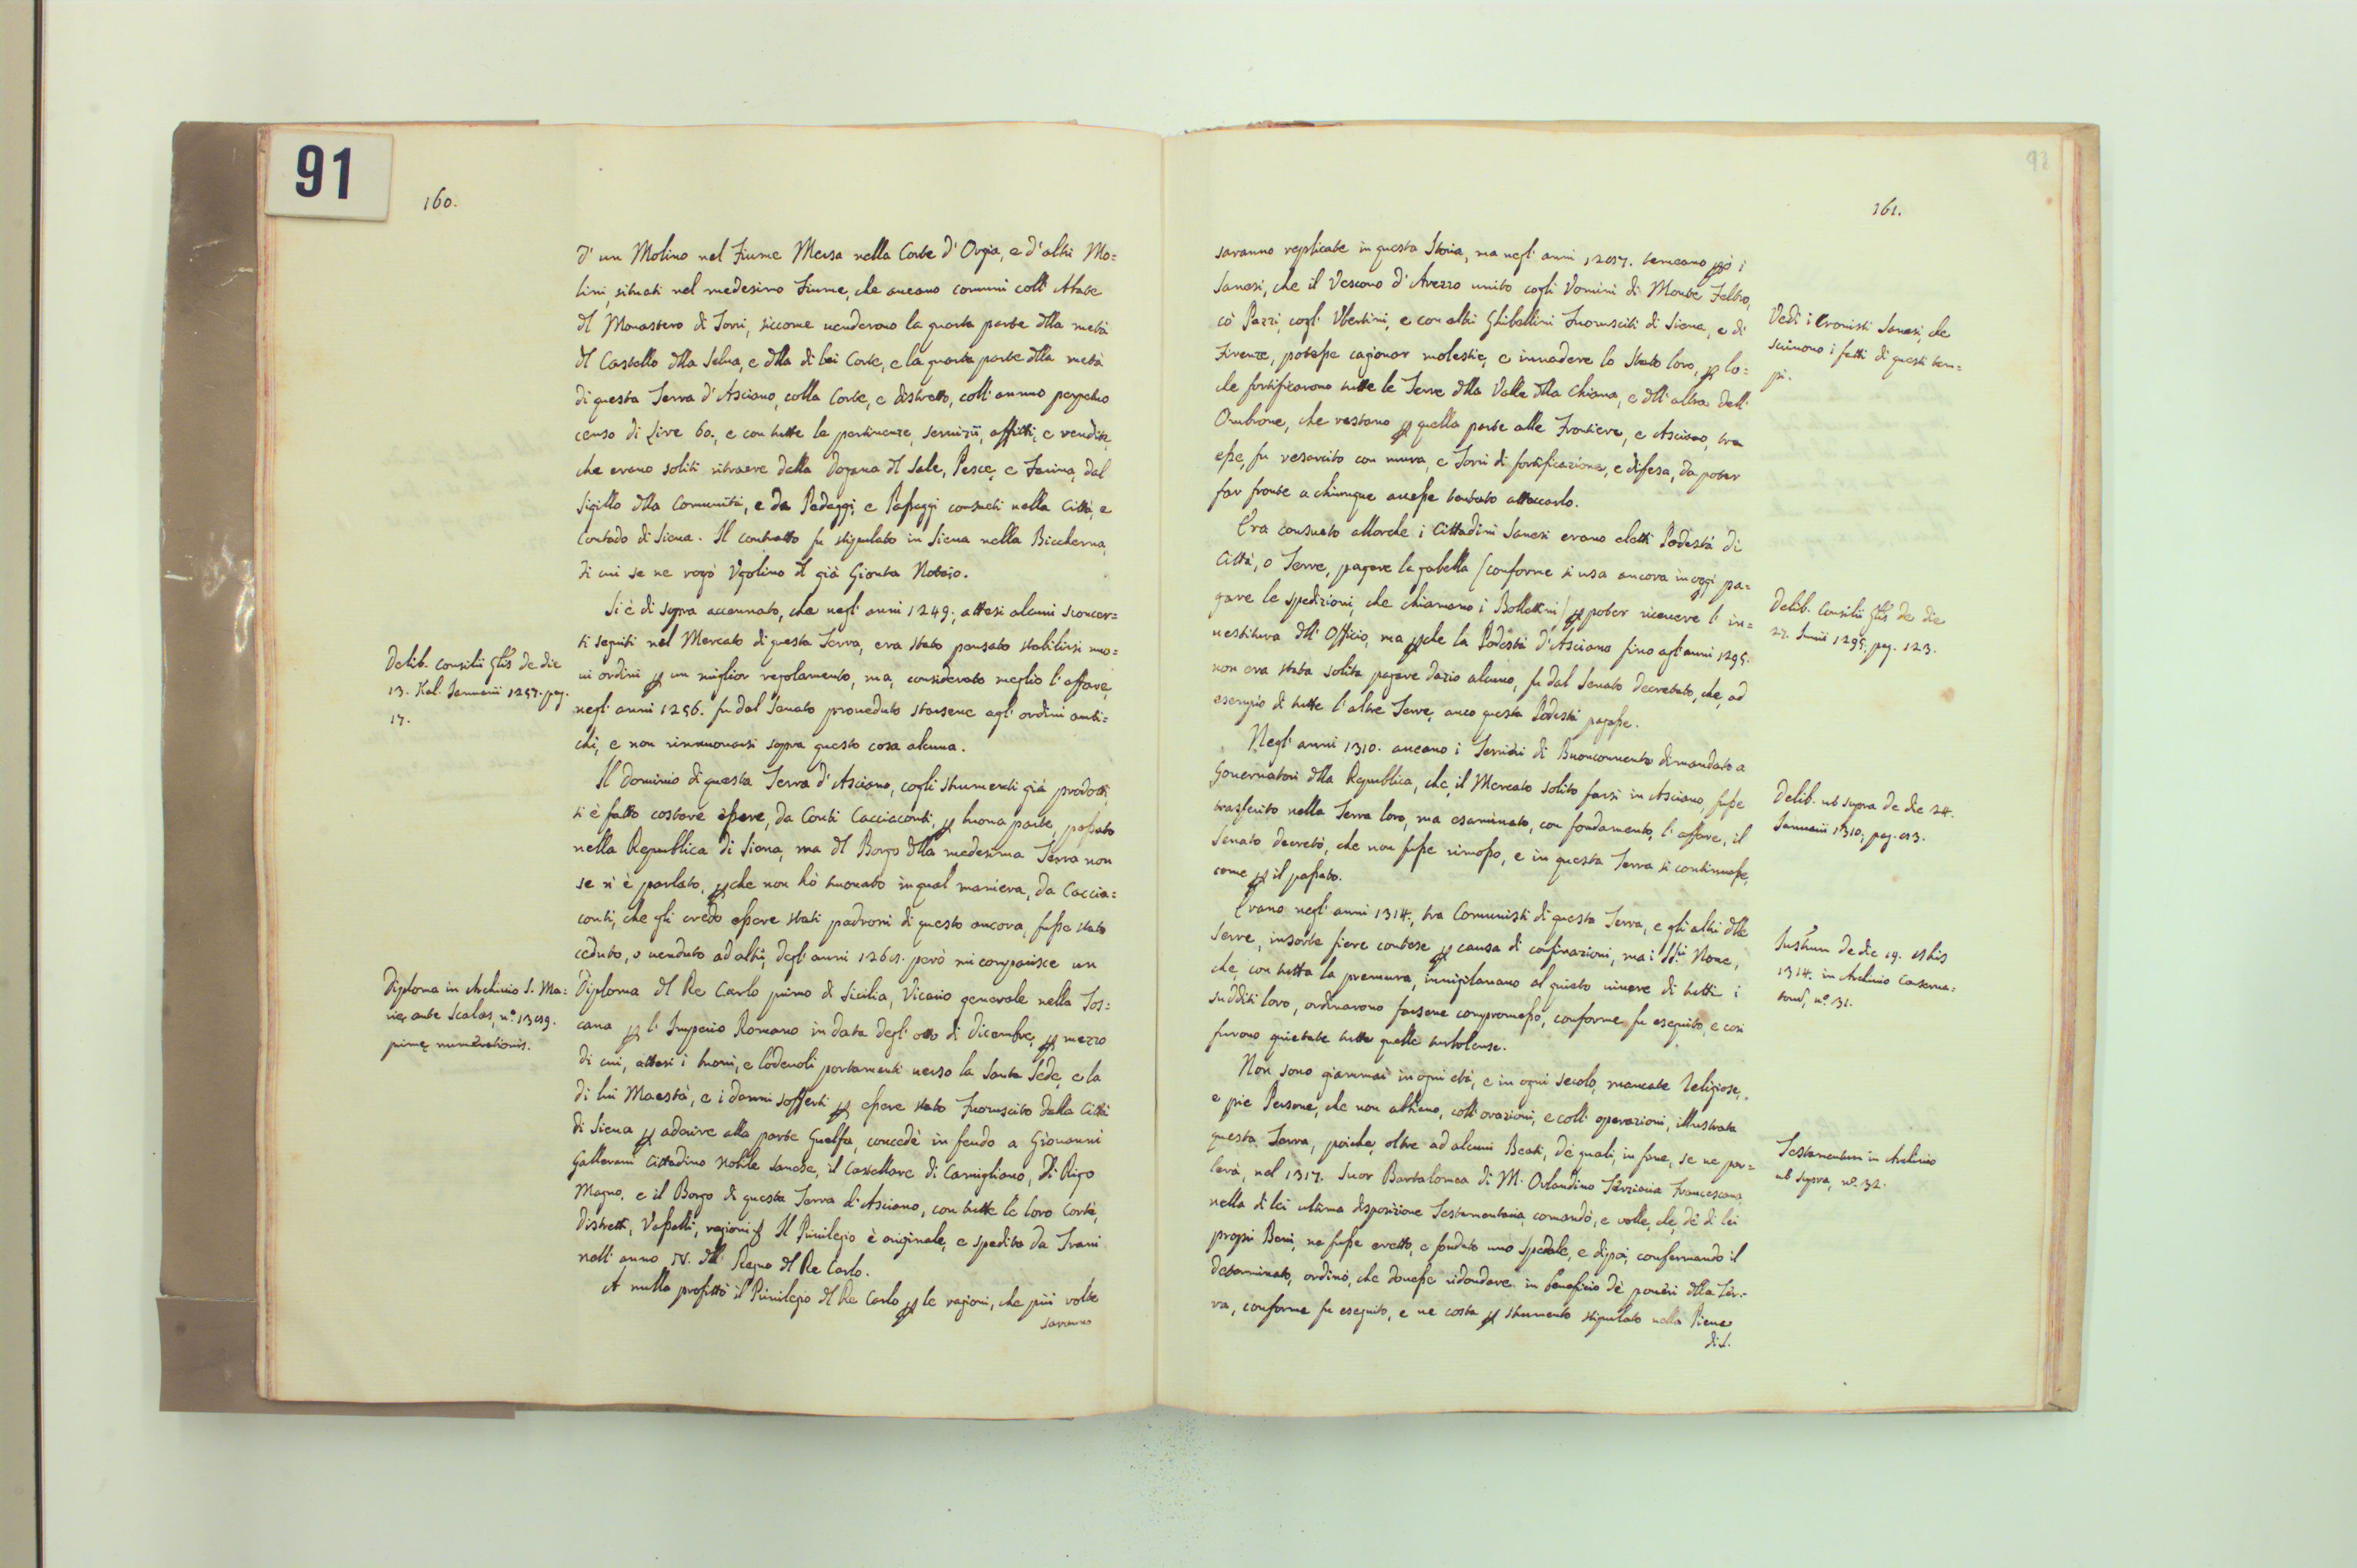 91
160.
d' un Molino nel Fiume Mersa nella Corte d' Orgia, e d' altri Mo=
lini, situati nel medesimo Fiume, che aueano comuni coll' Abate
dl Monastero di Torri, siccome uenderono la quarta parte dlla metà
dl Castello dlla Selua, e dlla di lui Corte, e la quarta parte dlla metà
di questa Terra d' Asciano, colla Corte, e distretto, coll' annuo perpetuo
censo di Lire 60., e con tutte le pertinenze, seruizii, affitti, e vendite,
che erano soliti ritraere dalla Dogana dl Sale, Pesce, e Farina, dal
Sigillo dlla Comunità, e da Pedaggi, e Passaggi consueti nella Città, e
Contado di Siena. Il contratto fu stipulato in Siena nella Biccherna,
di cui se ne rogò Ugolino dl già Gionta Notaio.
Si è di sopra accennato, che negl' anni 1249., attesi alcuni sconcer=
ti seguiti nel Mercato di questa Terra, era stato pensato stabilirsi nuo=
ui ordini p un miglior regolamento, ma, considerato meglio l' affare,
negl' anni 1256. fu dal Senato proueduto starsene agl' ordini anti=
chi, e non rinnuouarsi sopra questo cosa alcuna.
Delib. Consilii Glis de die
13. Kal. Januarii 1257. pag.
17.
Il dominio di questa Terra d' Asciano, cogli strumenti già prodotti,
si è fatto costare essere, da Conti Cacciaconti, p buona parte, passato
nella Republica di Siena, ma dl Borgo dlla medesima Terra non
se n' è parlato, pche non hò trouato in qual maniera, da Caccia=
conti, che gli credo essere stati padroni di questo ancora, fusse stato
ceduto, o uenduto ad altri, degl' anni però mi comparisce un
Diploma dl Re Carlo primo di Sicilia, Vicario generale nella Tos=
cana p l' Imperio Romano in data degl' otto di Dicembre, p mezzo
di cui, attesi i buoni, e lodeuoli portamenti uerso la Santa Sede, e la
di lui Maestà, e i danni sofferti p essere stato Fuoruscito dalla Città
di Siena p aderire alla parte Guelfa, concedè in feudo a Giouanni
Gallerani Cittadino Nobile Sanese, il Castellare di Camigliano, di Rigo
Magno, e il Borgo di questa Terra d' Asciano, con tutte le loro Corti,
Distretti, Vassalli, ragioni Il Priuilegio è originale, e spedito da Trani
nell' anno IV. dll Regno dl Re Carlo.
A nulla profittò il Priuilegio dl Re Carlo p le ragioni, che più volte
saranno
Diploma in Archiuio S. Ma=
riæ ante Scalas, nº.
primæ numerationis.
161.
saranno replicate in questa Storia, ma negl' anni temeano pò i
Sanesi, che il Vescouo d' Arezzo unito cogli Uomini di Monte Feltro,
cò Pazzi, cogl' Ubertini, e con altri Ghibellini Fuorusciti di Siena, e di
Firenze, potesse cagionar molestie, e inuadere lo Stato loro, p lo=
che fortificarono tutte le Terre dlla Valle dlla Chiana, e dll' altra dell'
Ombrone, che restano p quella parte alle Frontiere, e Asciano, tra
esse, fu resarcito con mura, e Torri di fortificazione, e difesa, da poter
far fronte a chiunque auesse tentato attaccarlo.
Vedi i Cronisti Sanesi, che
scriuono i fatti di questi tem=
pi.
Era consueto allorche i Cittadini Sanesi erano eletti Podestà di
Città, o Terre, pagare la gabella (conforme si usa ancora in oggi pa=
gare le spedizioni, che chiamano i Bollettini) p poter riceuere l' in=
uestitura dll' Officio, ma pche la Podestà d' Asciano fino agl' anni 1295.
non era stata solita pagare dazio alcuno, fu dal Senato decretato, che, ad
esempio di tutte l' altre Terre, anco questa Podestà pagasse.
Delib. Consilii Glis de die
27. Junii 1295. pag. 123.
Negl' anni 1310. aueano i Terrieri di Buonconuento dimandato a
Gouernatori dlla Republica, che, il Mercato solito farsi in Asciano, fusse
trasferito nella Terra loro, ma esaminato, con fondamento, l' affare, il
Senato decretò, che non fusse rimosso, e in questa Terra si continuasse,
come p il passato.
Delib. ut supra de die 24.
Januarii 1310; pag.
Erano negl' anni 1314., tra Comunisti di questa Terra, e gli altri dlle
Serre, insorte fiere contese p causa di confinazioni, ma i SSri. Noue,
che, con tutta la premura, inuigilauano al quieto uiuere di tutti i
sudditi loro, ordinarono farsene compromesso, conforme fu eseguito, e cosi
furono quietate tutte quelle turbolenze.
Instrum de die 19.
1314. in Archiuio Conserua=
torum, nº. 31.
Non sono giammai in ogni età, e in ogni secolo, mancate Religiose,
e pie Persone, che non abbiano, coll' orazioni, e coll' operazioni, illustrata
questa Terra, poiche, oltre ad alcuni Beati, de quali, in fine, se ne par=
lerà, nel 1317. Suor Bartalomea di M. Orlandino Terziaria Francescana
nella di lei ultima disposizione Testamentaria, comandò, e volle, che, de di lei
proprii Beni, ne fusse eretto, e fondato uno Spedale, e dipoi, confermando il
determinato, ordinò, che douesse ridondare in beneficio dè poueri dlla Ter=
ra, conforme fu eseguito, e ne costa p strumento stipulato nella Pieue
di S.
Testamentum in Archiuio
ut supra, nº. 32.